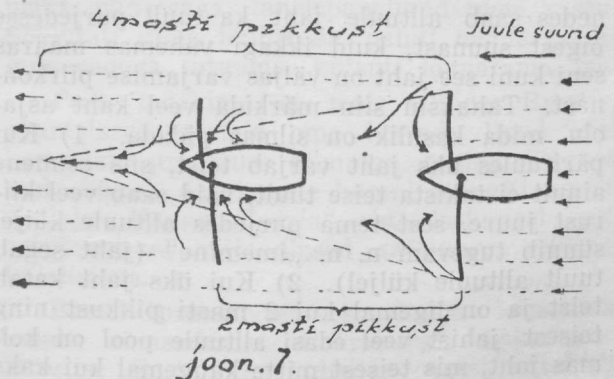 4 masti pikkust
Tuule suund
2 masti pikkust
joon. 1